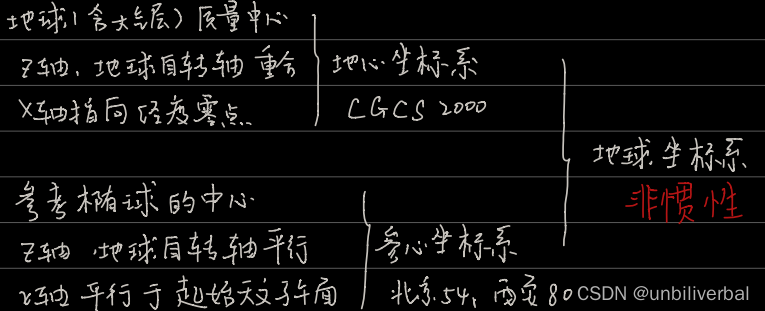 地球(含大气层)质量中心
Z轴,地球自转轴 重合
X轴指向经度零点
地心坐标系
CGCS 2000
参考椭球的中心
Z轴,地球自转轴平行
X轴 平行于起始天文子午面
参心坐标系
北京54,西安80
地球坐标系
非惯性
CSDN @unbiliverbal